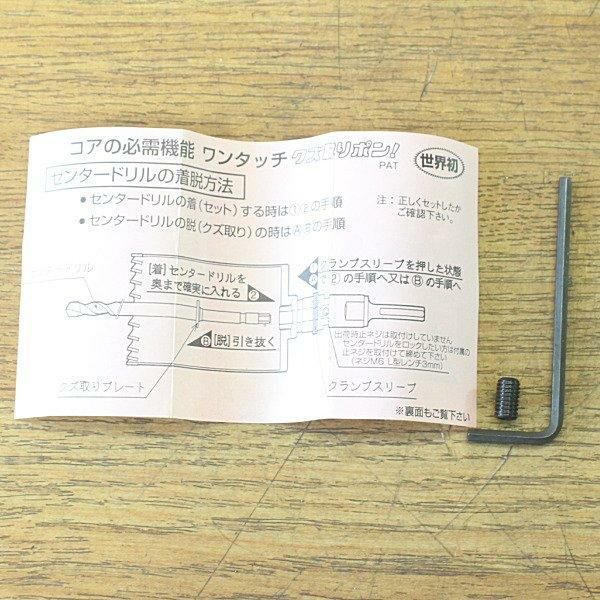 コアの必需機能 ワンタッチ クズ取りポン!
PAT
世界初
センタードリルの着脱方法
• センタードリルの着(セット)する時は①②の手順
• センタードリルの脱(クズ取り)の時はⒶⒷの手順
注:正しくセットしたか
ご確認下さい。
センタードリル
[着]センタードリルを
奥まで確実に入れる ②
クランプスリーブを押した状態
②の手順へ又はⒷの手順へ
Ⓑ [脱]引き抜く
出荷時止ネジは取付けしていません
センタードリルをロックしたい方は付属の
止ネジを取付けて締めて下さい
(ネジM6 L型レンチ3mm)
クズ取りプレート
クランプスリーブ
※裏面もご覧下さい